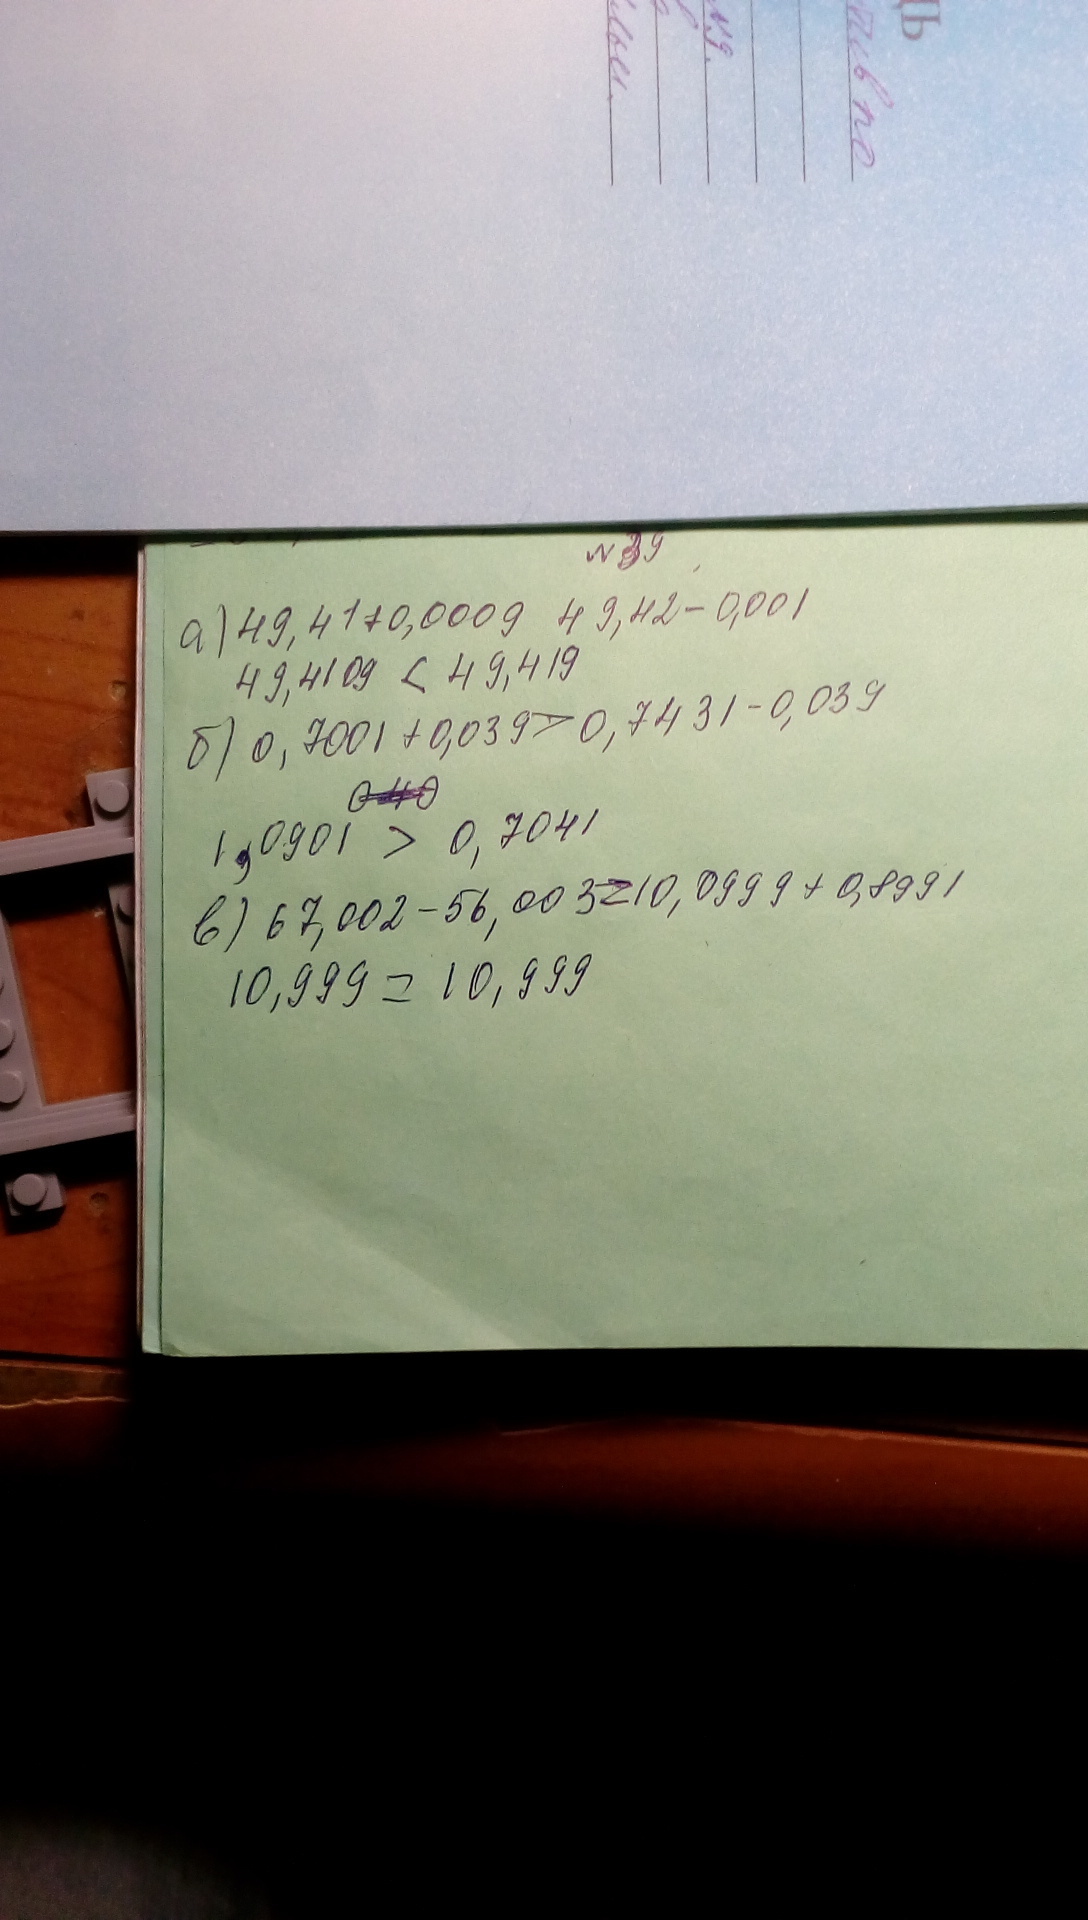 ДЬ
тив по
№9.
льи.
№39
а) 49,41+0,0009 49,42-0,001
49,4109 < 49,419
б) 0,7001+0,039>0,7431-0,039
1,0901 > 0,7041
в) 67,002-56,003=10,0999+0,8991
10,999 = 10,999